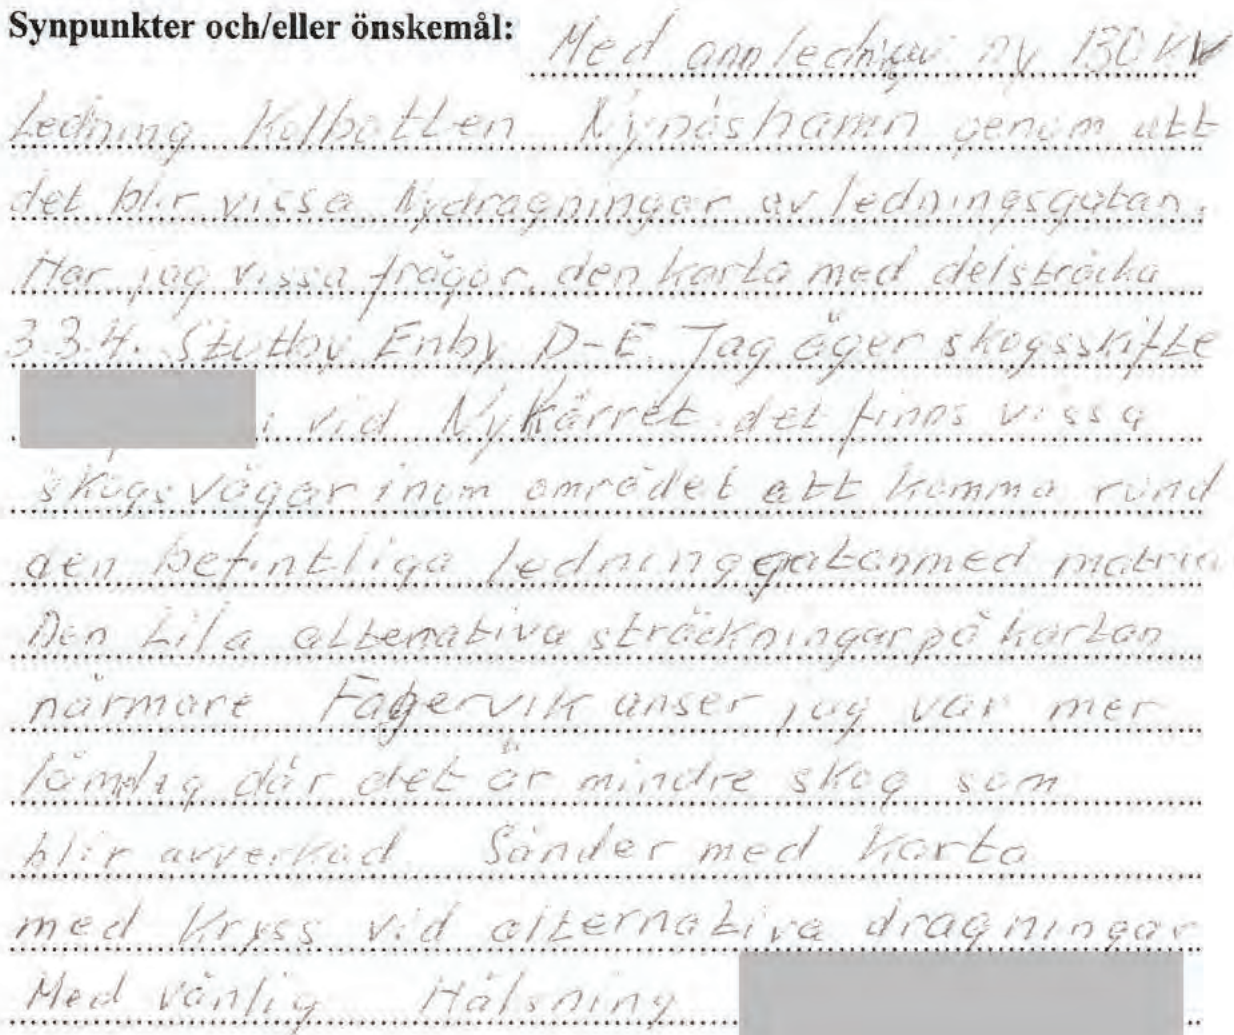 Synpunkter och/eller önskemål: Med annledning ny 130 kV
Ledning Kolbotten Nynäshamn genom att
det blir vissa Nydragningar av ledningsgatan.
Har jag vissa frågor. den karta med delsträcka
3.3.4. Stutby Enby D-E. Jag äger skogsskifte
i vid Nykärret. det finns vissa
skogsvägar inom området att komma rund
den befintliga ledninggatan med matria
Den Lila alternativa sträckningar på kartan
närmare Fagervik anser jag var mer
lämplig där det är mindre skog som
blir avverkad Sänder med karta
med Kryss vid alternativa dragningar
Med vänlig Hälsning